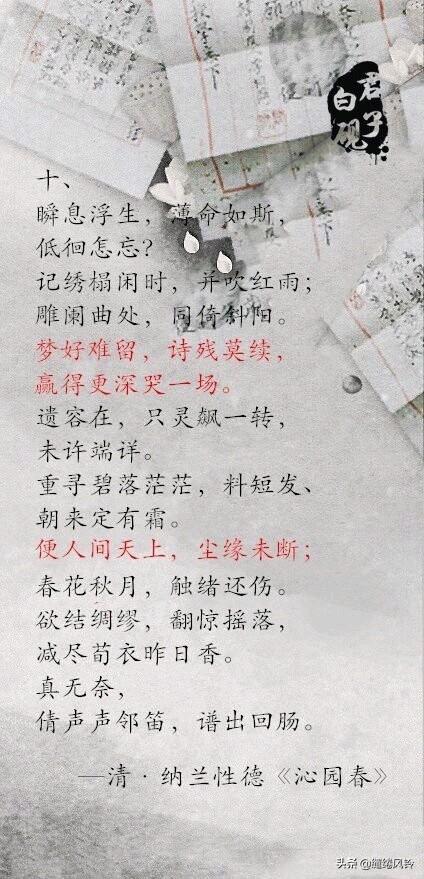 君子
白砚
十、
瞬息浮生，薄命如斯，
低徊怎忘？
记绣榻闲时，并吹红雨；
雕阑曲处，同倚斜阳。
梦好难留，诗残莫续，
赢得更深哭一场。
遗容在，只灵飙一转，
未许端详。
重寻碧落茫茫，料短发、
朝来定有霜。
便人间天上，尘缘未断；
春花秋月，触绪还伤。
欲结绸缪，翻惊摇落，
减尽荀衣昨日香。
真无奈，
倩声声邻笛，谱出回肠。
—清·纳兰性德《沁园春》
头条@缱绻风铃